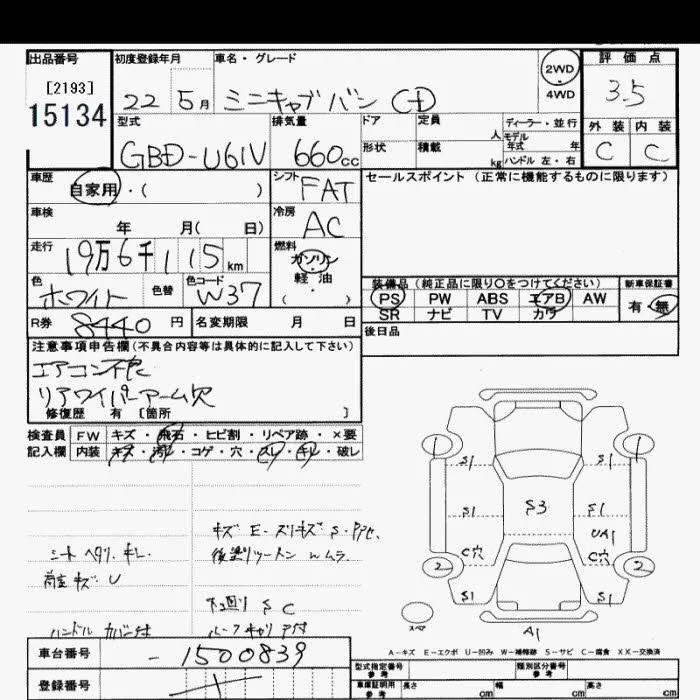 出品番号 初度登録年月 車名・グレード 2WD 評価点
[2193] 4WD 3.5
15134 22 5月 ミニキャブバン CD
型式 排気量 ドア 定員 人 ディーラー・並行 外装 内装
モデル年式 年
GBD-U61V 660cc 形状 積載 kg ハンドル 左・右 C C
車歴 自家用・( ) シフト FAT セールスポイント (正常に機能するものに限ります)
車検 年 月( 日) 冷房 AC
走行 19万6千115km 燃料 ガソリン・軽油・( )
色 ホワイト 色替 色コード W37 装備品 (純正品に限り○をつけてください) 新車保証書
PS PW ABS エアB AW 有・無
SR ナビ TV カワ
R券 8440円 名変期限 月 日 後日品
注意事項申告欄(不具合内容等は具体的に記入して下さい)
エアコン不良
リアワイパーアーム欠
修復歴 有 [箇所 ]
検査員 FW キズ・飛石・ヒビ割・リペア跡・×要
記入欄 内装 キズ・汚れ・コゲ・穴・スレ・キレ・破レ
1 1
S1 S1
S1 S3 S1
UA1
C穴 C穴
2 2
S1 S1
キズ E-スリキズ S
シートヘタリ、キレ 後塗りツートン ムラ
荷室キズ U
下回り S C
ハンドルカバー付 ルーフキャリア付
スペア A1
A-キズ E-エクボ U-凹み W-補修跡 S-サビ C-腐食 XX-交換済
車台番号 -1500839 型式指定番号 参考 類別区分番号 参考
登録番号 車庫証明用 参考 長さ cm 幅 cm 高さ cm